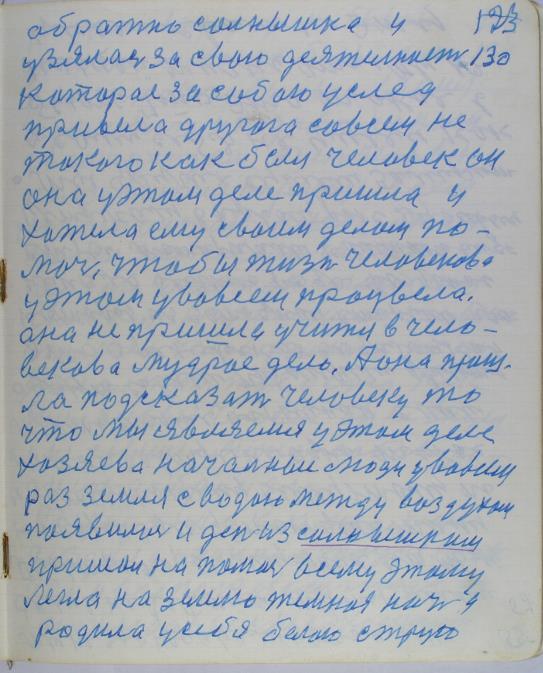 обратно солнышка и 123
узялас за свою деятелност 130
которае за собою услед
привела другога совсем не
такого как был человек он
она уэтом деле пришла и
хотела ему своим делом по-
моч, чтобы жизн человекова
уэтом увовсем процвела.
она не пришла учитя в чело-
векова мудрае дело. А она приш-
ла подсказат человеку то
что мы являемя уэтом деле
хозяева началные люди увовсем
раз земля с водою между воздухом
появилас и ден из солнышком
пришол на помоч всему этому
легла на землю темная ноч я
родила усебя белою струю